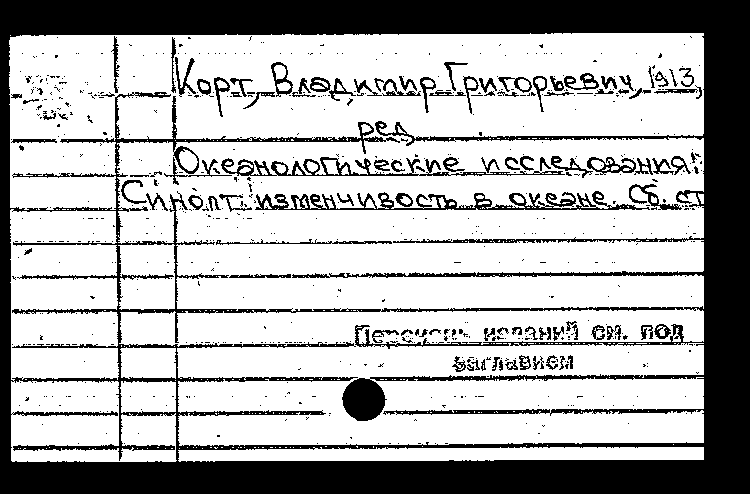 Корт, Владимир Григорьевич, 1913,
ред.
Океанологические исследования;
Синопт. изменчивость в океане. Сб. ст
Перечень изданий см. под
заглавием